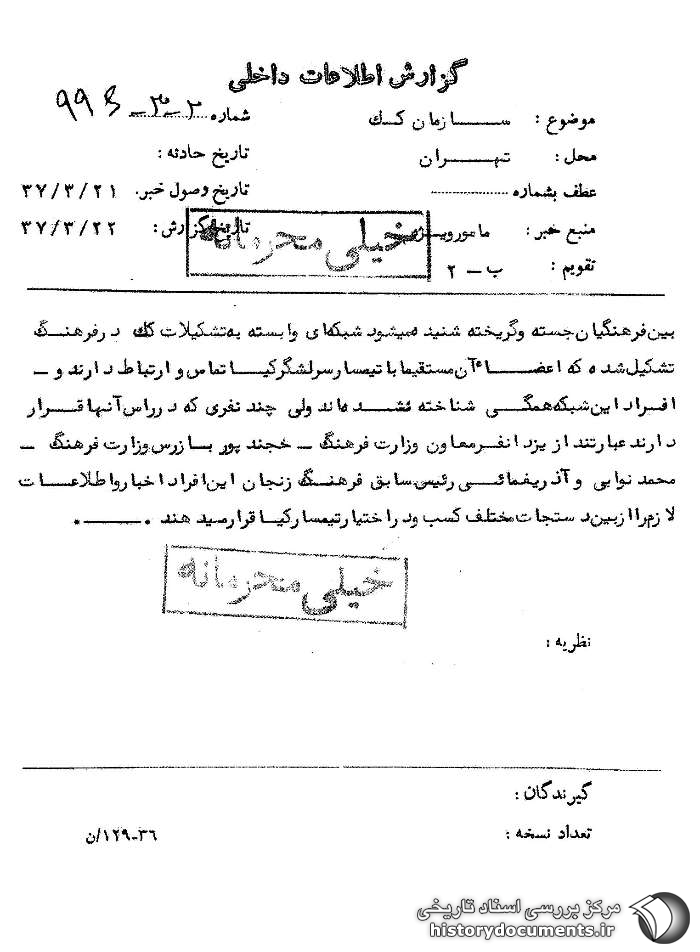 گزارش اطلاعات داخلی
موضوع : ســـازمان کـک
شماره ۲_۳_ 993
محل : تهـــران
تاریخ حادثه :
عطف بشماره
تاریخ وصول خبر. ۳۷/۳/۲۱
منبع خبر : مامورویـژه
تاریخ گزارش : ۳۷/۳/۲۲
تقویم : ب – ۲
خیلی محرمانه
بین فرهنگیان جسته وگریخته شنید ه میشود شبکه ای وابسته به تشکیلات کک د رفرهنگ
تشکیل شد ه که اعضـــاء آن مستقیما با تیمسا رسرلشگرکیـا تماس و ارتباط د ارند و ـ
افراد این شبکه همگـی شناخته نشـد ه اند ولی چند نفری که د رراس آنها قـرار
د ارند عبارتند از یزد انفـرمعاون وزارت فرهنگ ـ خجند پور بـازرس وزارت فرهنگ ـ
محمد نوابی و آذ ریغمائـی رئیس سابق فرهنـگ زنجان این افراد اخبار واطلاعـات
لازم را ازبین د ستجات مختلف کسب ود راختیارتیمسارکیـا قرارمید هند .ـــــ.
خیلی محرمانه
نظریه :
گیرندگان :
تعداد نسخه :
۳۶-۱۲۹/ن
مرکز بررسی اسناد تاریخی
historydocuments.ir